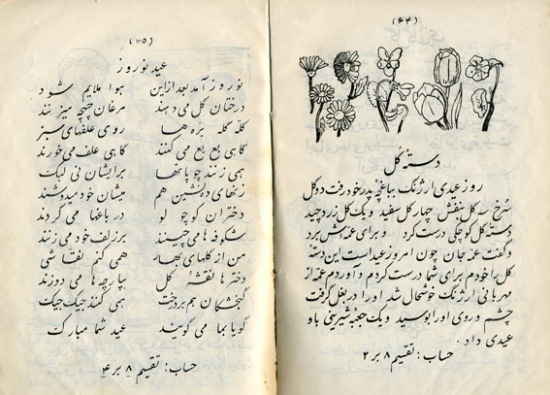 (۶۴)
دسته گل
روز عیدی ارژنگ بباغچه پدر خود رفت دو گل
سرخ سه گل بنفش چهار گل سفید و یک گل زرد چید
دسته گل کوچکی درست کرد و برای عمه‌اش برد
و گفت عمه جان چون امروز عید است این دسته
گل را خودم برای شما درست کردم و آوردم عمه از
مهربانی ارژنگ خوشحال شد او را در بغل گرفت
چشم و روی او را بوسید و یک جعبه شیرینی باو
عیدی داد.
حساب: تقسیم ۸ بر ۲
(۶۵)
عید نوروز
نوروز آمد بعد از این هوا ملایم شود
درختان گل می دهند مرغان چهچه میزنند
گله گله بره ها روی علفهای سبز
گاهی بع بع می کنند گاهی علف می خورند
همی زنند چوپانها برایشان نی لبک
زنهای ده نشین هم میشان خود میدوشند
دختران کوچولو در باغها می گردند
شکوفه ها می چینند بر زلف خود می زنند
من از گلهای بهار همی کنم نقاشی
دخترها نقشه گل بپارچه ها می دوزند
گنجشکان هم بر درخت همی کنند جیک جیک
گویا بما می گویند عید شما مبارک
حساب: تقسیم ۸ بر ۴